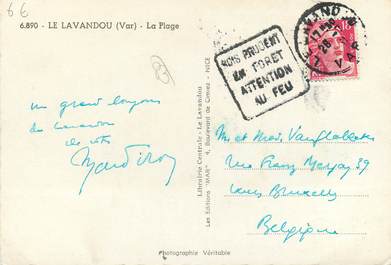 6€
6.890 - LE LAVANDOU (Var) - La Plage
LE LAVANDOU
VAR
SOIS PRUDENT
EN FORET
ATTENTION
AU FEU
83
un grand bonjour
du Lavandou
de
Librairie Centrale - Le Lavandou
Les Editions "MAR", 4, Boulevard de Cimiez - NICE
M. et Mad.
rue Franz Merjay 39
Bruxelles
Belgique
Photographie Véritable